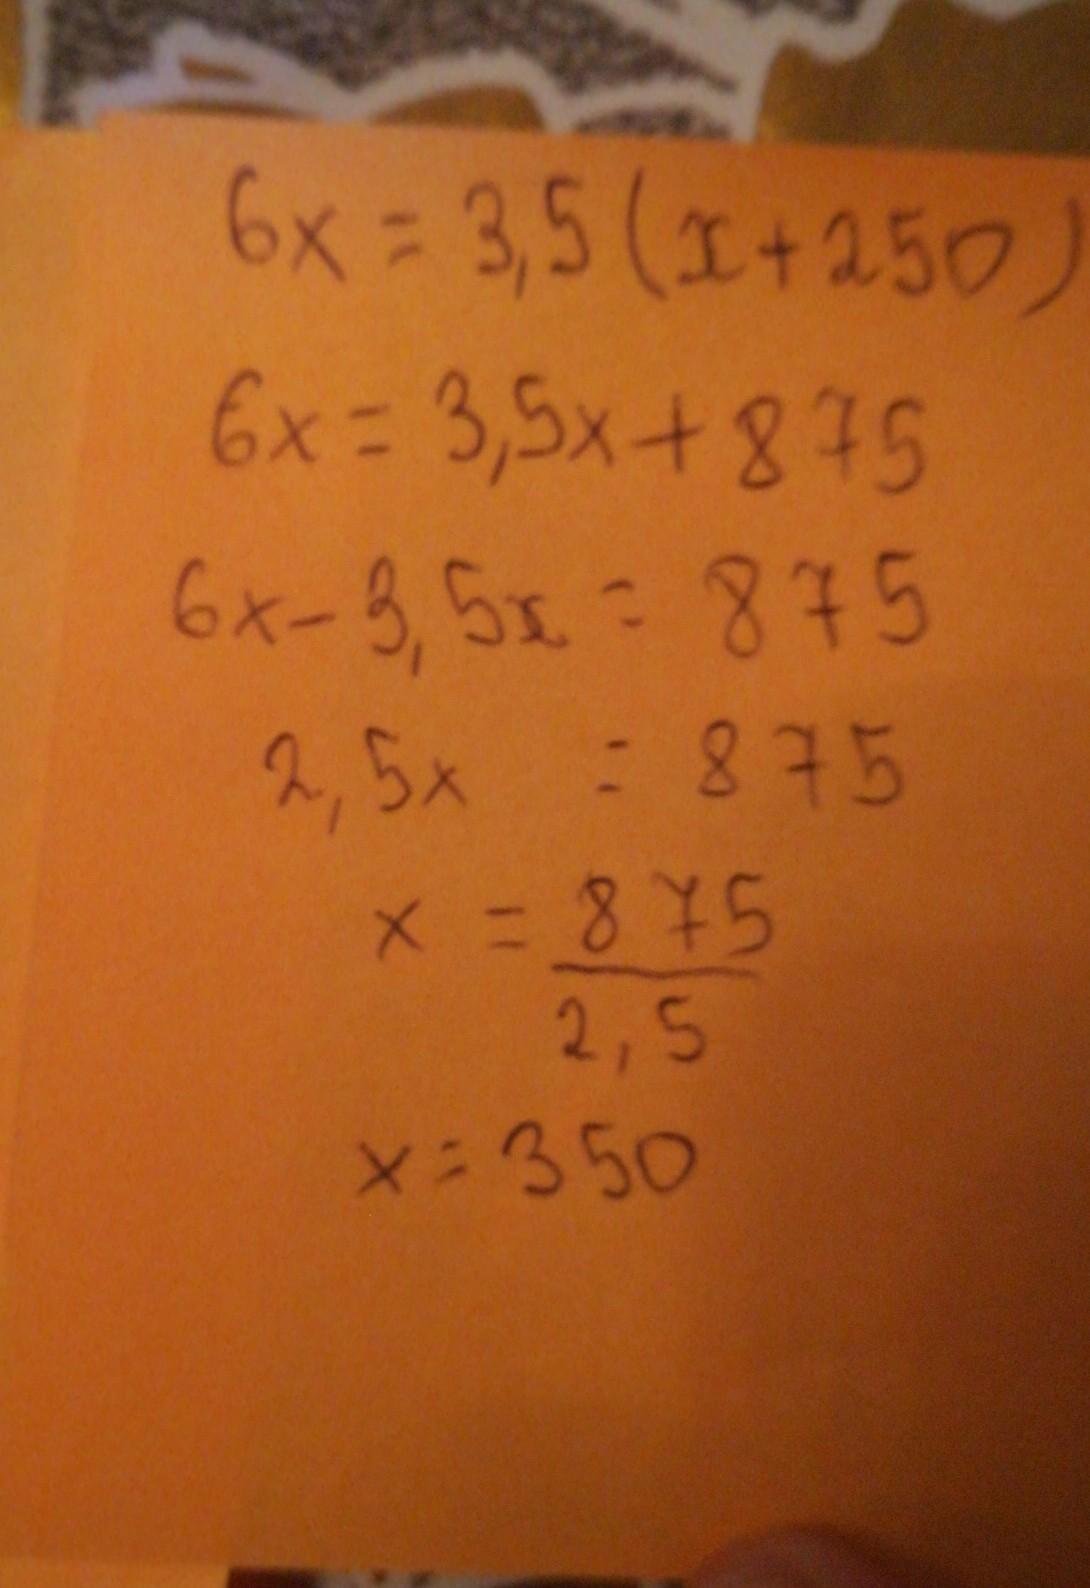 6x = 3,5 (x + 250)
6x = 3,5x + 875
6x - 3,5x = 875
2,5x = 875
x = 875
2,5
x = 350